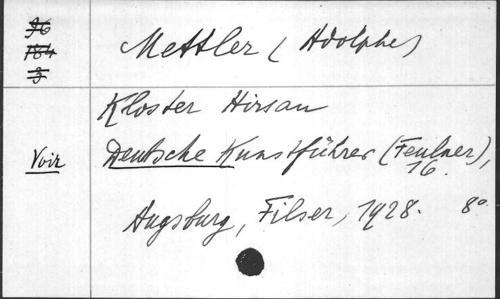 96
184
3
Mettler (Adolphe)
Kloster Hirsau
Voir
Deutsche Kunstführer (Feulner),
16.
Augsburg, Filser, 1928. 8º